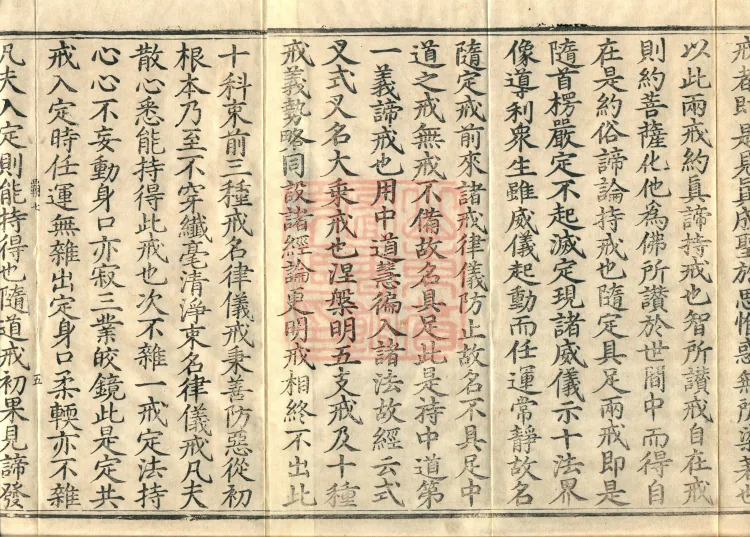 戒者即是
以此兩戒約眞諦持戒也智所讃戒自在戒
則約菩薩化他爲佛所讃於世間中而得自
在是約俗諦論持戒也隨定具足兩戒即是
隨首楞嚴定不起滅定現諸威儀示十法界
像導利衆生雖威儀起動而任運常靜故名
隨定戒前來諸戒律儀防止故名不具足中
道之戒無戒不備故名具足此是持中道第
一義諦戒也用中道慧徧入諸法故經云式
叉式叉名大乘戒也涅槃明五支戒及十種
戒義勢略同設諸經論更明戒相終不出此
十科束前三種戒名律儀戒秉善防惡從初
根本乃至不穿纖毫清淨束名律儀戒凡夫
散心悉能持得此戒也次不雜一戒定法持
心心不妄動身口亦寂三業皎鏡此是定共
戒入定時任運無雜出定身口柔輭亦不雜
霸七
五
凡夫入定則能持得也隨道戒初果見諦發